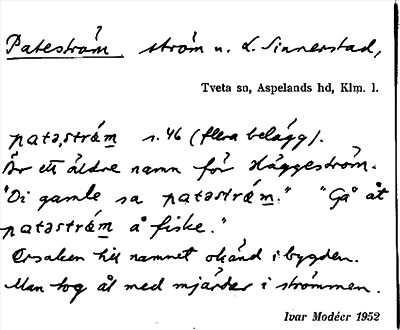 Pateström ström n. L. Sinnerstad,
Tveta sn, Aspelands hd, Klm. l.
patəströ́m s. 46 (flera belägg).
Är ett äldre namn för Häggeström.
"Di gamle sa patəströ́m." "Gå åt
patəströ́m å fiske."
Orsaken till namnet okänd i bygden.
Man tog ål med mjärder i strömmen.
Ivar Modéer 1952